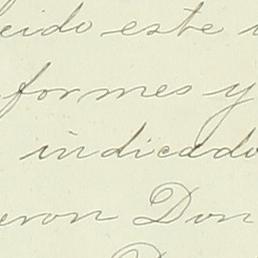 eido este
formes y
indicado
eron Don